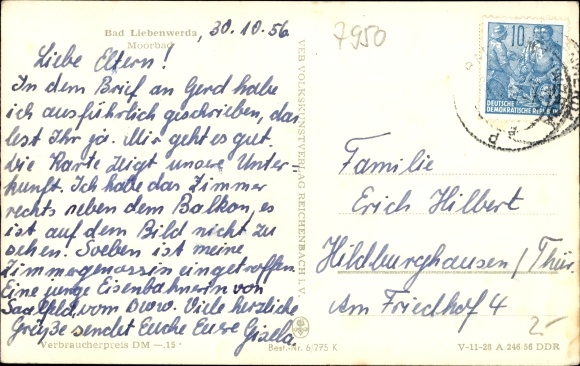 Bad Liebenwerda, 30.10.56
Moorbad
Liebe Eltern!
In dem Brief an Gerd habe
ich ausführlich geschrieben, das
lest Ihr ja. Mir geht es gut.
Die Karte zeigt unsere Unter-
kunft. Ich habe das Zimmer
rechts neben dem Balkon, es
ist auf dem Bild nicht zu
sehen. Soeben ist meine
Zimmergenossin eingetroffen.
Eine junge Eisenbahnerin von
Saalfeld, vom Büro. Viele herzliche
Grüße sendet Euche Eure Gisela.
Verbraucherpreis DM —.15
VEB VOLKSKUNSTVERLAG REICHENBACH i. V.
Best.-Nr. 6/275 K
7950
10
DEUTSCHE
DEMOKRATISCHE REPUBLIK
Familie
Erich Hilbert
Hildburghausen/Thür.
Am Friedhof 4
2-
V-11-28 A 246 56 DDR